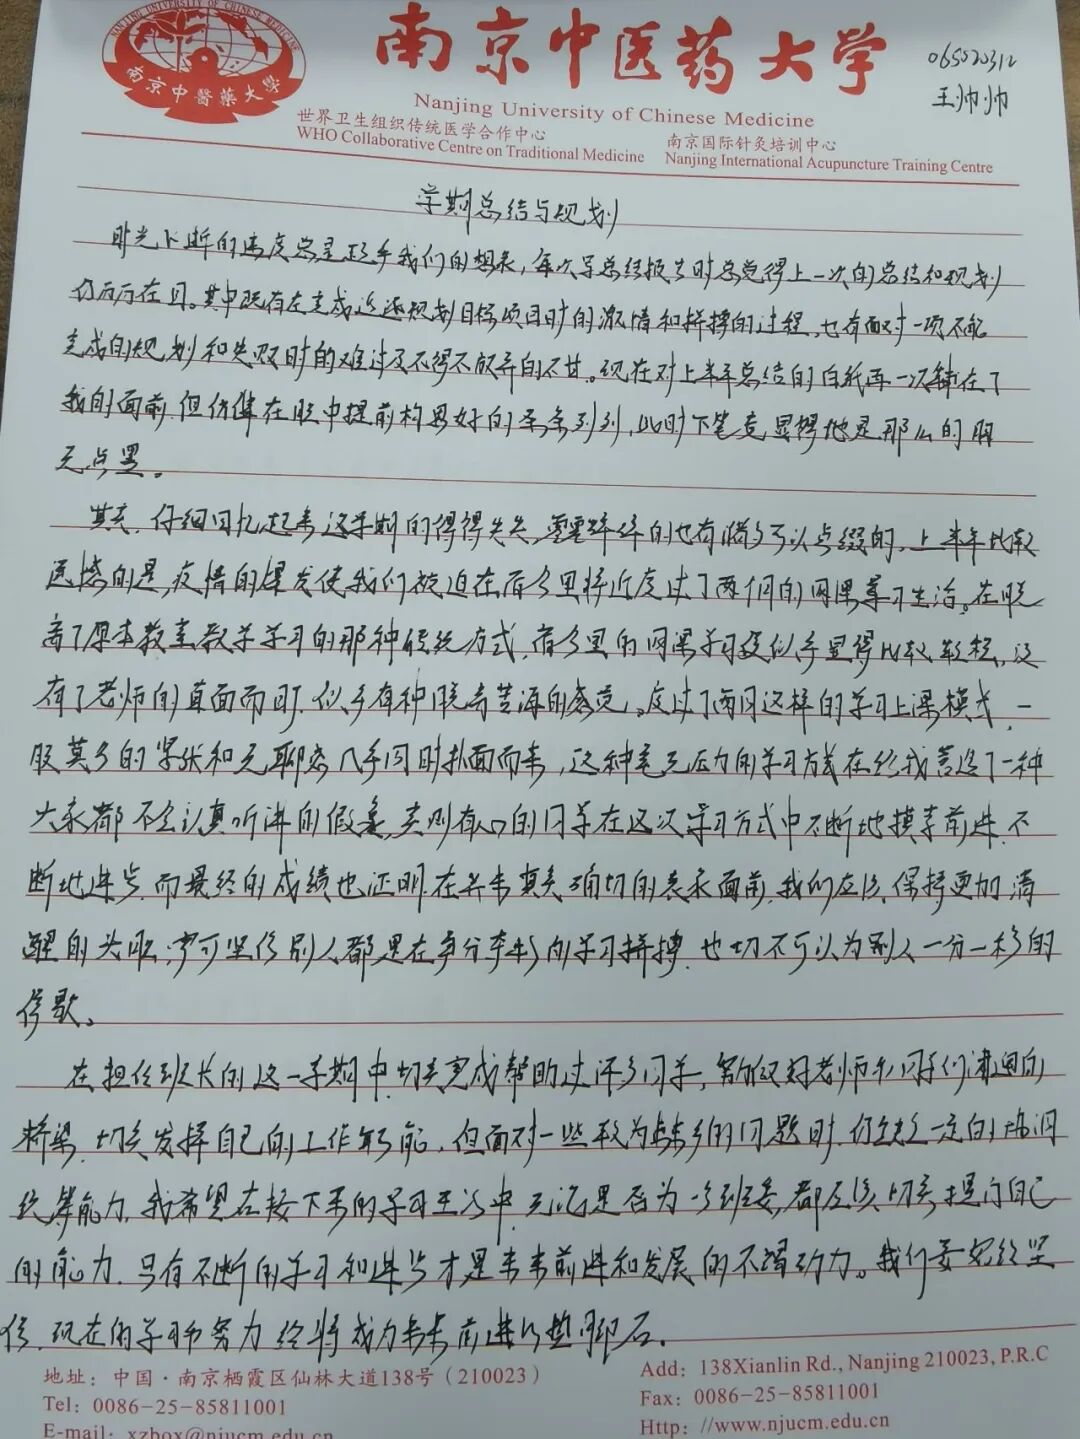 NANJING UNIVERSITY OF CHINESE MEDICINE
南京中醫藥大學
南京中医药大学
Nanjing University of Chinese Medicine
世界卫生组织传统医学合作中心
WHO Collaborative Centre on Traditional Medicine
南京国际针灸培训中心
Nanjing International Acupuncture Training Centre
065520312
王帅帅
学期总结与规划
时光不断的速度总是超乎我们的想象,每次写总结报告时总觉得上一次的总结和规划
仍历历在目。其中既有在完成这逐规划目标项目时的激情和拼搏的过程,也有面对一项不能
完成的规划和失败时的难过及不得不放弃的不甘。现在对上半年总结的白纸再一次铺在了
我的面前,但仿佛在脑中提前构思好的条条列列,此时下笔竟显得地是那么的胸
无点墨。
其实,仔细回忆起来这学期的得得失失,零零碎碎的也有诸多可以点缀的,上半年比较
遗憾的是,疫情的爆发使我们被迫在宿舍里将近度过了两个月的网课学习生活。在脱
离了原本教室教学学习的那种传统方式,宿舍里的网课学习貌似乎显得比较轻松,没
有了老师的真面而可,似乎有种脱离苦海的感觉。度过了两周这样的学习上课模式,一
股莫名的紧张和无聊感几乎同时扑面而来,这种毫无压力的学习方式在给我营造了一种
大家都不会认真听讲的假象,实则有心的同学在这次学习方式中不断地摸索前进,不
断地进步,而最终的成绩也证明,在并未真实确切的表承面前,我们应该保持更加清
醒的头脑:宁可坚信别人都是在争分夺秒的学习拼搏,也切不可认为别人一分一秒的
停歇。
在担任班长的这一学期中,切实完成帮助过许多同学,努做好老师和同学们沟通的
桥梁,切实发挥自己的工作职能,但面对一些较为棘手的问题时,仍缺乏一定的协调
统筹能力,我希望在接下来的学习生活中,无论是否为一名班委,都应该切实提升自己
的能力,只有不断的学习和进步才是未来前进和发展的不竭动力。我们要始终坚
信,现在的学习和努力终将成为未来前进的垫脚石。
地址:中国·南京栖霞区仙林大道138号(210023)
Tel: 0086-25-85811001
E-mail: xzbox@njucm.edu.cn
Add: 138Xianlin Rd., Nanjing 210023, P.R.C
Fax: 0086-25-85811001
Http: //www.njucm.edu.cn